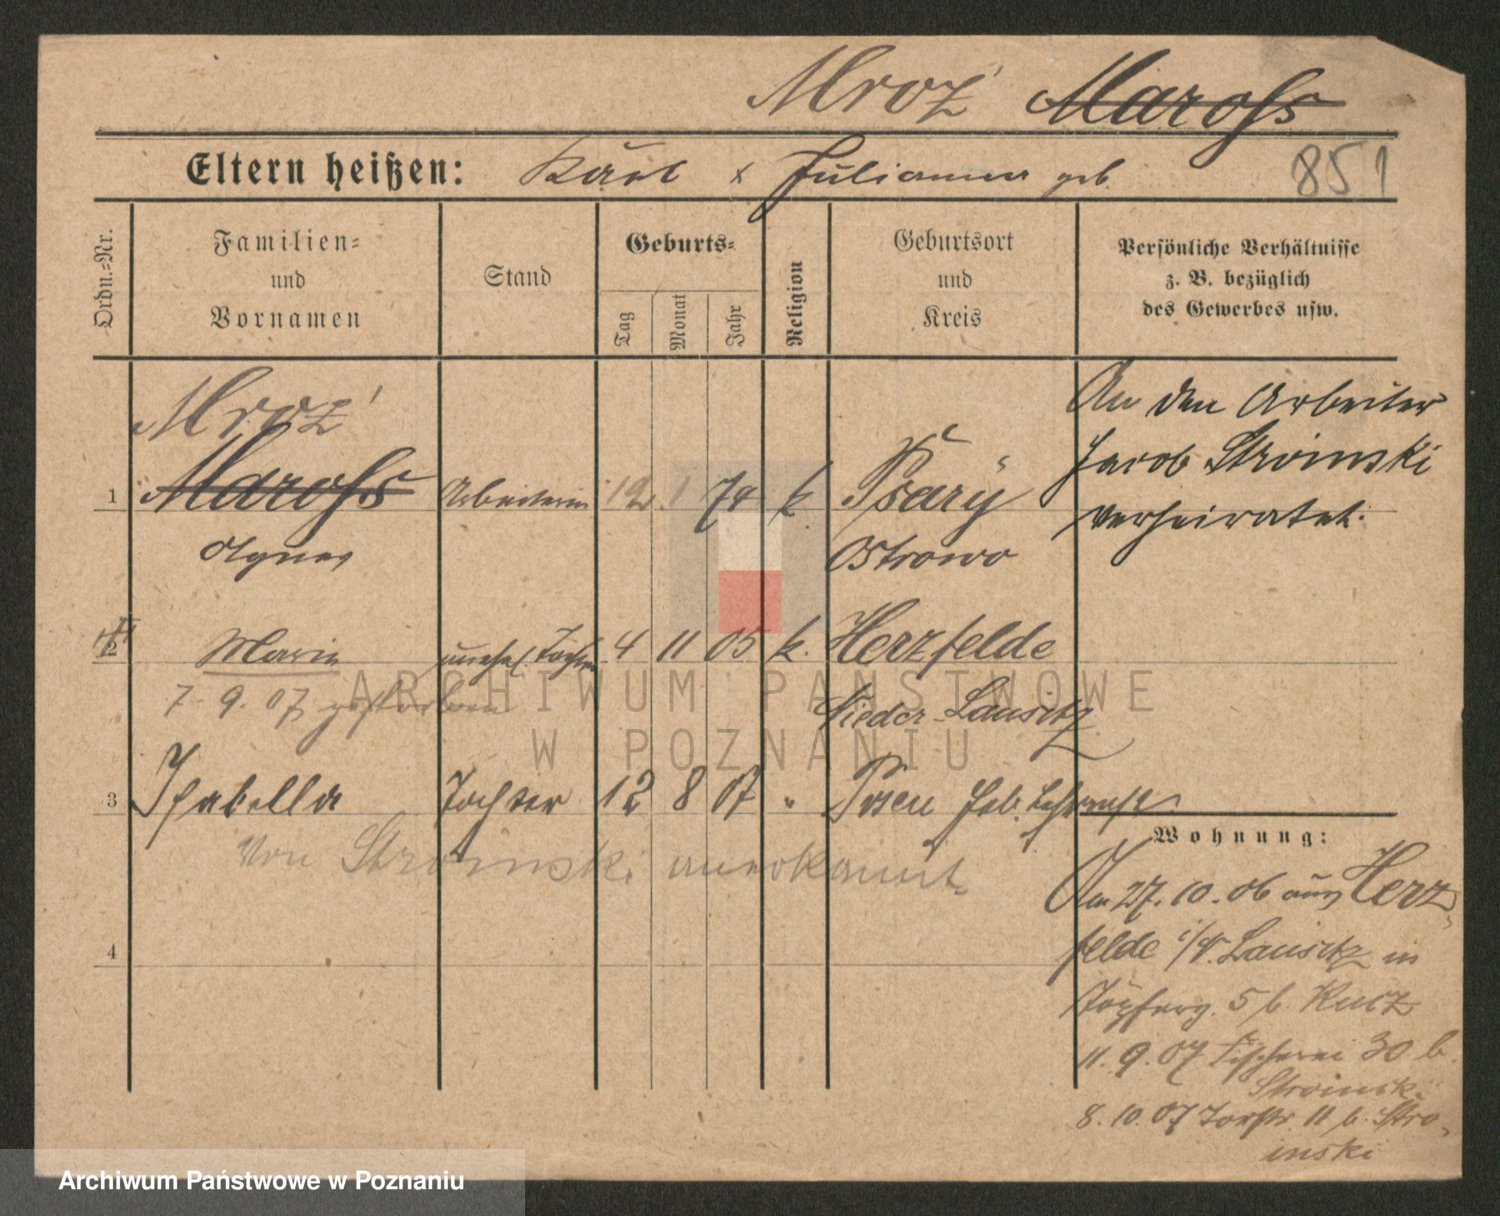 Mroź Maroſs
Eltern heißen: Karl x Julianna geb.
851
Ordn.=Nr.
Familien=
und
Vornamen
Stand
Geburts=
Tag
Monat
Jahr
Religion
Geburtsort
und
Kreis
Persönliche Verhältnisse
z. B. bezüglich
des Gewerbes usw.
Mroź
1 Maroſs Arbeiterin 12 1 74 k Psary
Agnes Ostrowo
An den Arbeiter
Jacob Stroinski
verheiratet.
2 Marie unehel. Tochter 4 11 05 k. Herzfelde
7. 9. 07 gestorben Nieder-Lausitz
3 Isabella Tochter 12 8 07 " Posen
Von Stroinski anerkannt.
4
Wohnung:
Am 27. 10. 06 aus Herz-
felde i/N. Lausitz in
Töpferg. 5 b.
11. 9. 07 Fischerei 30 b.
Stroinski
8. 10. 07 Torstr. 11 b. Stro-
inski
ARCHIWUM PAŃSTWOWE
W POZNANIU
Archiwum Państwowe w Poznaniu